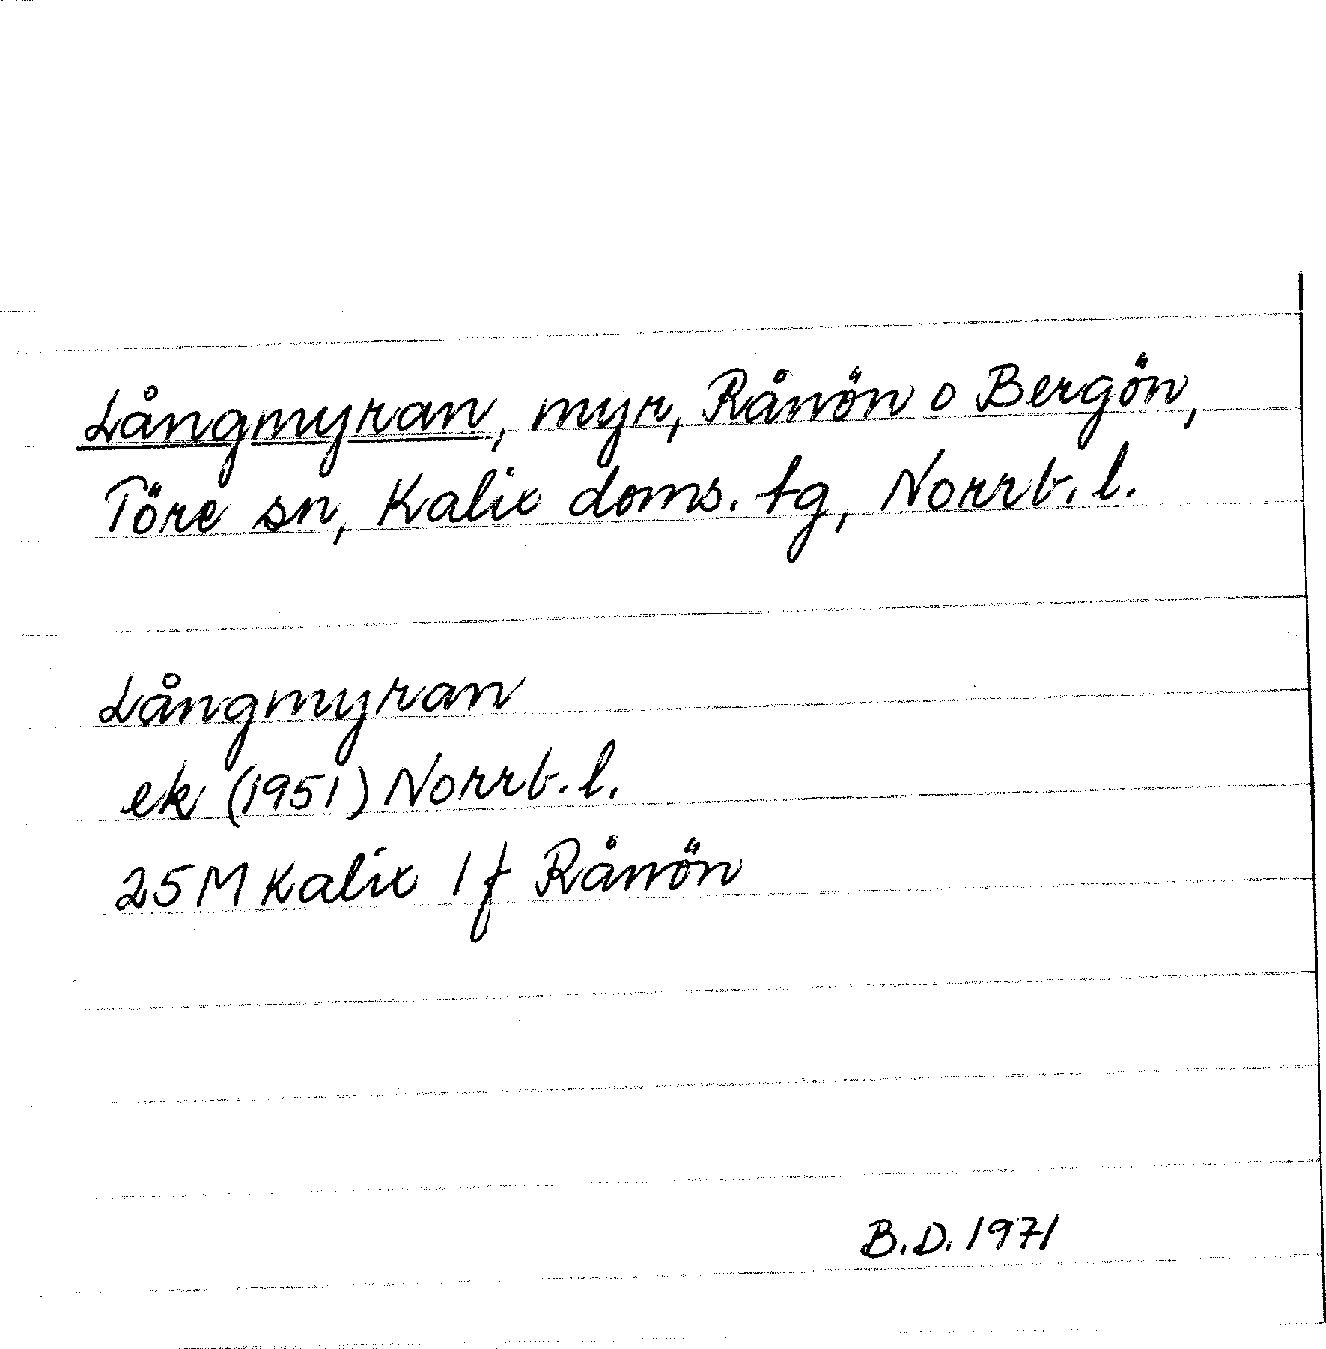 Långmyran, myr, Rånön o Bergön,
Töre sn, Kalix doms. tg, Norrb. l.
Långmyran
ek (1951) Norrb. l.
25M Kalix 1 f Rånön
B.D. 1971